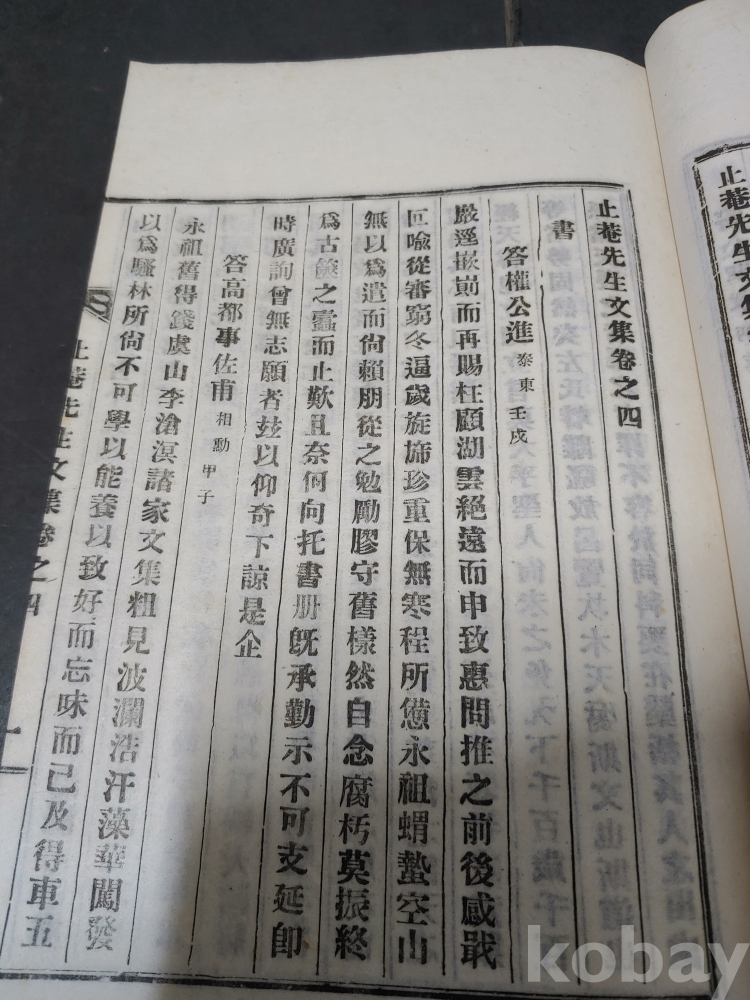 止菴先生文集卷之四
書
答權公進 泰東 壬戌
嚴逕嵌前而再賜枉顧湖雲絕遠而申致惠問推之前後感戢
叵喩從審窮冬逼歲旋旆珍重保無寒程所憊永祖蝟蟄空山
無以爲遣而尙賴朋從之勉勵膠守舊樣然自念腐朽莫振終
爲古簏之蠹而止歎且奈何向托書册旣承勤示不可支延卽
時廣詢曾無志願者玆以仰奇下諒是企
答高都事佐甫 相勳 甲子
永祖舊得錢虞山李滄溟諸家文集粗見波瀾浩汗藻華闖發
以爲騷林所尙不可學以能養以致好而忘味而已及得車五
止菴先生文集卷之四
一
止菴先生文集
kobay